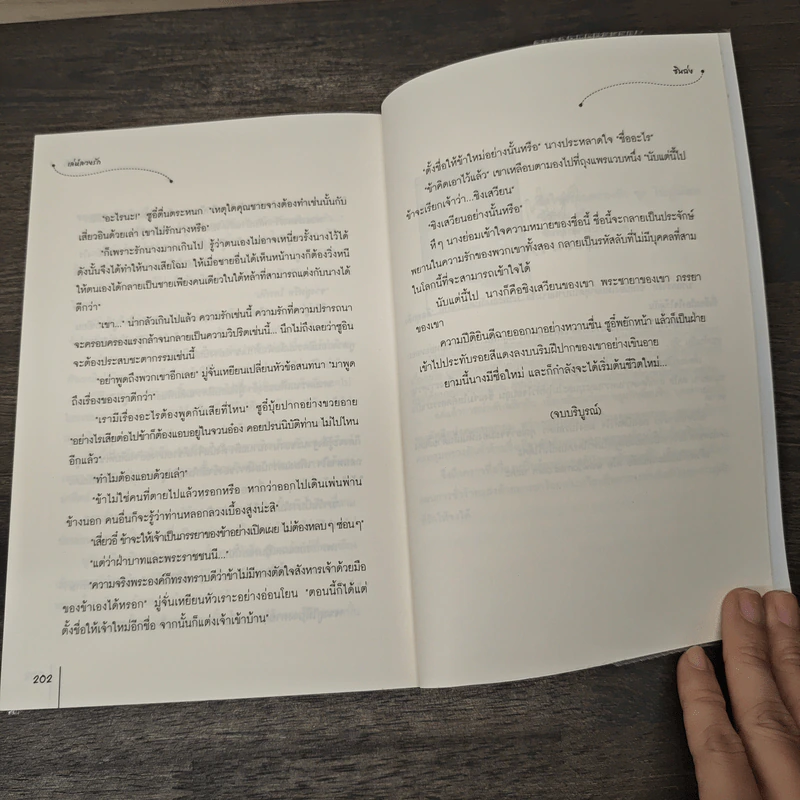 "อะไรนะ!" ซูอี๋ตื่นตระหนก "เหตุใดคุณชายจางต้องทำเช่นนั้นกับ
เสี่ยวอินด้วยเล่า เขาไม่รักนางหรือ"
"ก็เพราะรักนางมากเกินไป รู้ว่าตนเองไม่อาจเหนี่ยวรั้งนางไว้ได้
ดังนั้นจึงได้ทำให้นางเสียโฉม ให้เมื่อชายอื่นได้เห็นหน้านางก็ต้องวิ่งหนี
ให้ตนเองได้กลายเป็นชายเพียงคนเดียวในใต้หล้าที่สามารถแต่งกับนางได้
ดีกว่า"
"เขา..." น่ากลัวเกินไปแล้ว ความรักเช่นนี้ ความรักที่ความปรารถนา
จะครอบครองแรงกล้าจนกลายเป็นความวิปริตเช่นนี้... นึกไม่ถึงเลยว่าซูอิน
จะต้องประสบชะตากรรมเช่นนี้
"อย่าพูดถึงพวกเขาอีกเลย" มู่จั่นเหยียนเปลี่ยนหัวข้อสนทนา "มาพูด
ถึงเรื่องของเราดีกว่า"
"เรามีเรื่องอะไรต้องพูดกันเสียที่ไหน" ซูอี๋บุ้ยปากอย่างขวยอาย
"อย่างไรเสียต่อไปข้าก็ต้องแอบอยู่ในจวนอ๋อง คอยปรนนิบัติท่าน ไม่ไปไหน
อีกแล้ว"
"ทำไมต้องแอบด้วยเล่า"
"ข้าไม่ใช่คนที่ตายไปแล้วหรอกหรือ หากว่าออกไปเดินเพ่นพ่าน
ข้างนอก คนอื่นก็จะรู้ว่าท่านหลอกลวงเบื้องสูงน่ะสิ"
"เสี่ยวอี๋ ข้าจะให้เจ้าเป็นภรรยาของข้าอย่างเปิดเผย ไม่ต้องหลบๆ ซ่อนๆ"
"แต่ว่าฝ่าบาทและพระราชชนนี..."
"ความจริงพระองค์ก็ทรงทราบดีว่าข้าไม่มีทางตัดใจสังหารเจ้าด้วยมือ
ของข้าเองได้หรอก" มู่จั่นเหยียนหัวเราะอย่างอ่อนโยน "ตอนนี้ก็ได้แต่
ตั้งชื่อให้เจ้าใหม่อีกชื่อ จากนั้นก็แต่งเจ้าเข้าบ้าน"
202
"ตั้งชื่อให้ข้าใหม่อย่างนั้นหรือ" นางประหลาดใจ "ชื่ออะไร"
"ข้าคิดเอาไว้แล้ว" เขาเหลือบตามองไปที่ถุงแพรแวบหนึ่ง "นับแต่นี้ไป
ข้าจะเรียกเจ้าว่า...ชิงเสวียน"
"ชิงเสวียนอย่างนั้นหรือ"
หึๆ นางย่อมเข้าใจความหมายของชื่อนี้ ชื่อนี้จะกลายเป็นประจักษ์
พยานในความรักของพวกเขาทั้งสอง กลายเป็นรหัสลับที่ไม่มีบุคคลที่สาม
ในโลกนี้ที่จะสามารถเข้าใจได้
นับแต่นี้ไป นางก็คือชิงเสวียนของเขา พระชายาของเขา ภรรยา
ของเขา
ความปีติยินดีฉายออกมาอย่างหวานชื่น ซูอี๋พยักหน้า แล้วก็เป็นฝ่าย
เข้าไปประทับรอยสีแดงลงบนริมฝีปากของเขาอย่างเขินอาย
ยามนี้นางมีชื่อใหม่ และก็กำลังจะได้เริ่มต้นชีวิตใหม่...
(จบบริบูรณ์)